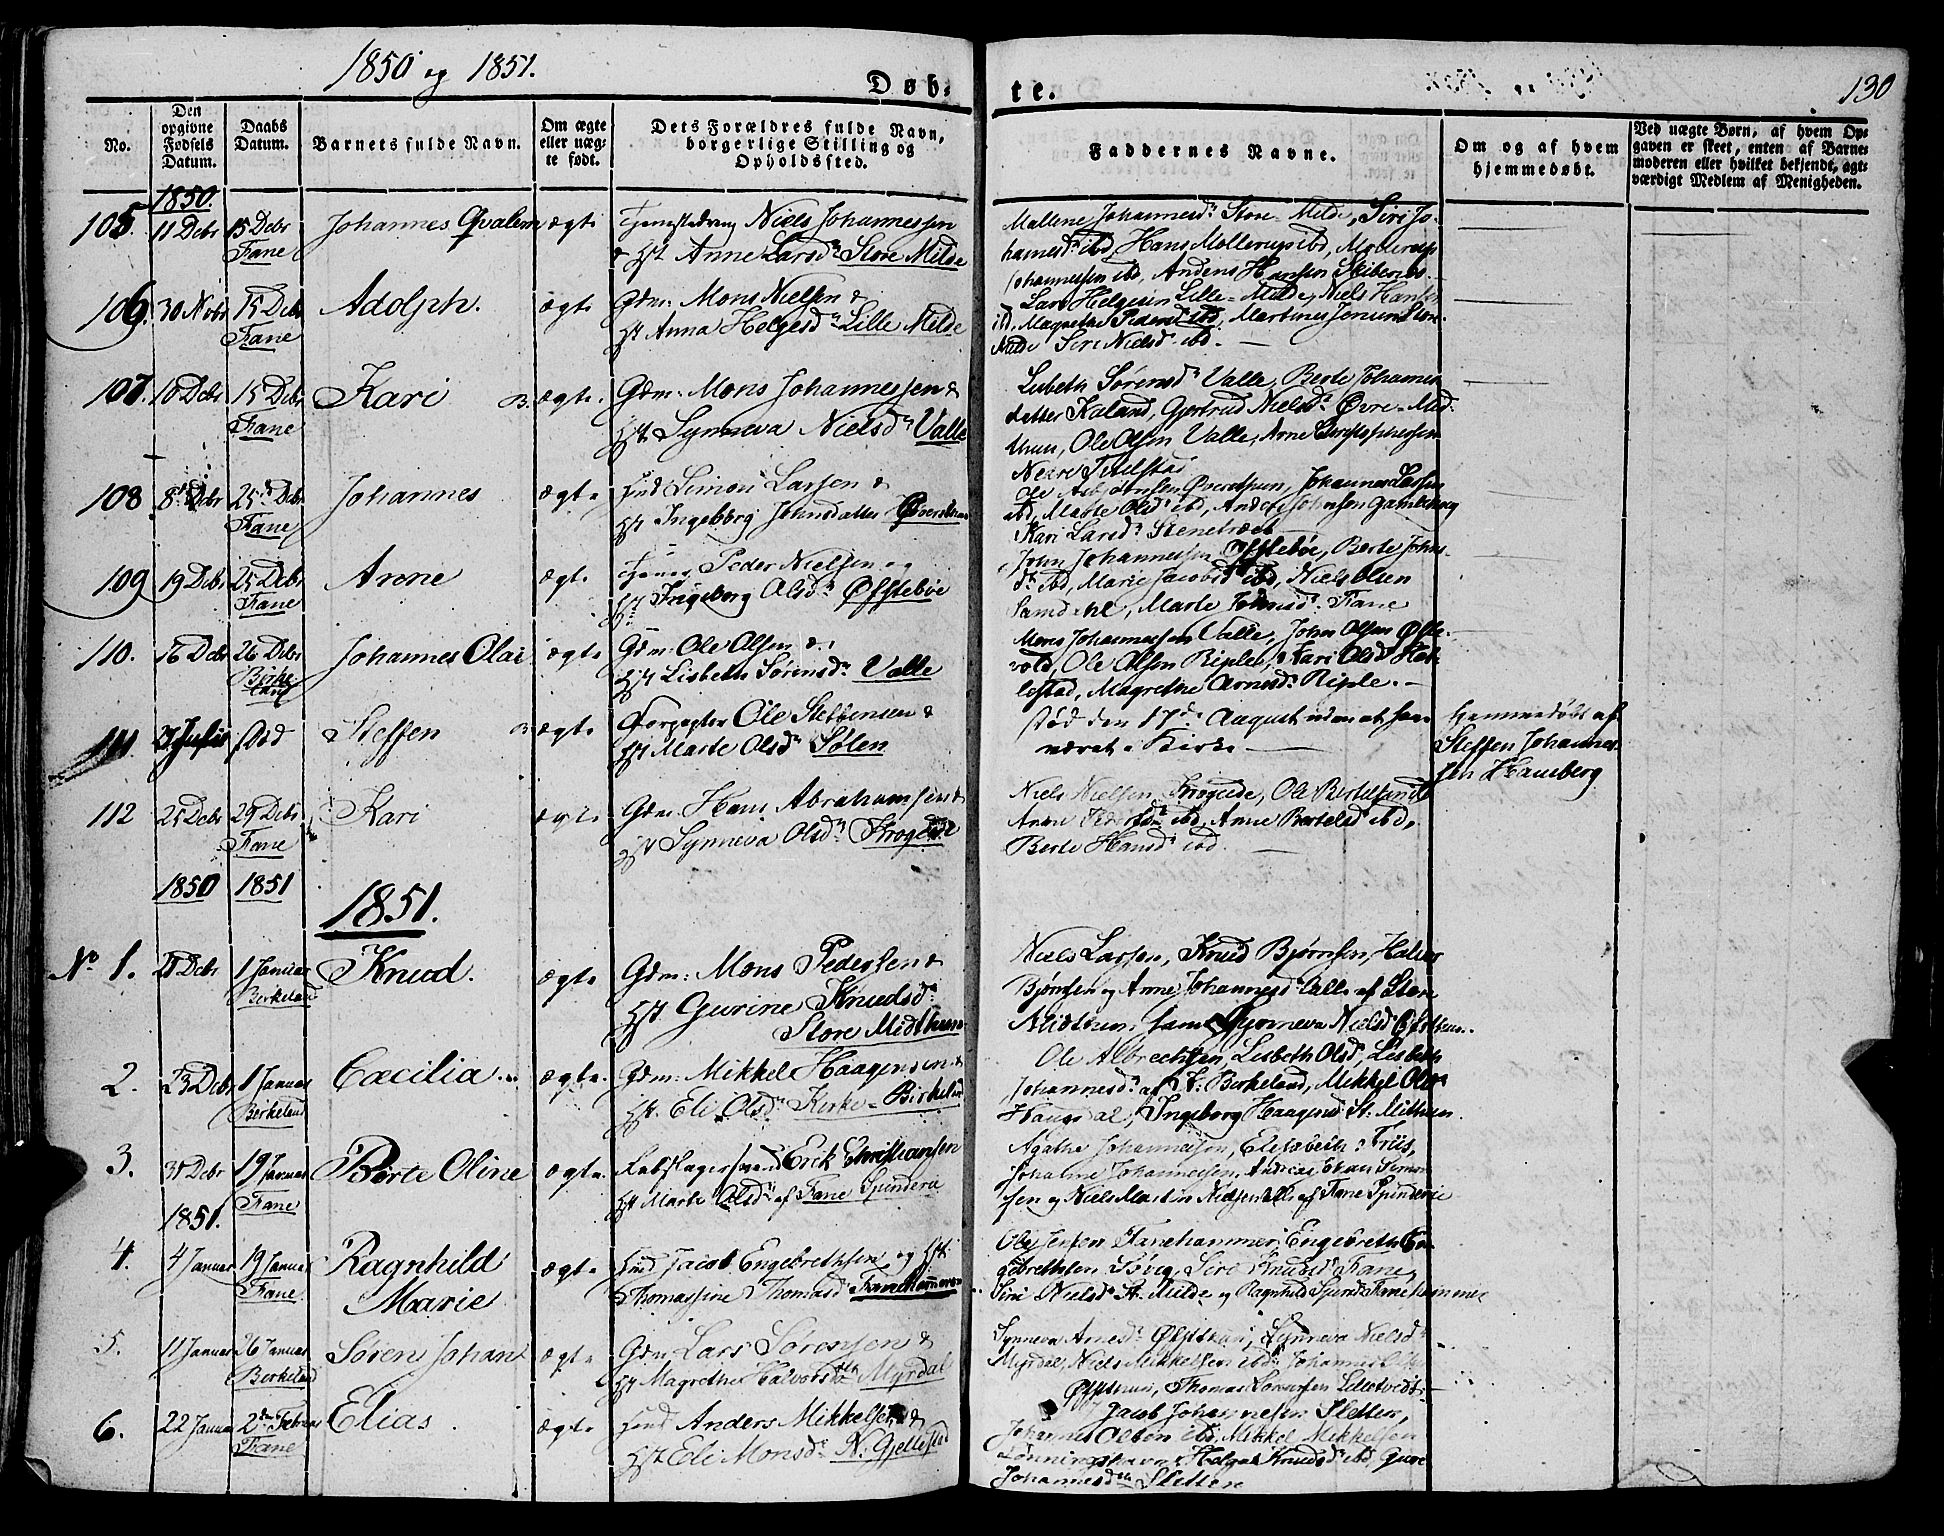 1850 og 1851.
Døb-
te.
130
No.
Den
opgivne
Fødsels
Datum.
Daabs
Datum.
Barnets fulde Navn.
Om ægte
eller uæg-
te født.
Dets Forældres fulde Navn,
borgerlige Stilling og
Opholdssted.
Faddernes Navne.
Om og af hvem
hjemmedøbt.
Ved uægte Børn, af hvem Op-
gaven er skeet, enten af Barne-
moderen eller hvilket bekjendt, agt-
værdigt Medlem af Menigheden.
1850.
105. 11 Debr 15 Debr Johannes Qvalem ægte Niels Johannessen
Fane Hst Anne Larsdr Store Milde
Mallene Johannesdr Store-Milde, Siri Jo-
hannesdr ibd, Hans Mollerup ibd, Mollerup
Johannessen ibd, Anders Hansen
106. 30 Novbr 15 Debr Adolph. ægte Gdm: Mons Nielsen &
Fane Hst Anna Helgesdr Lille Milde
Lars Helgesen Lille-Milde, Niels Hansen
ibd, Magrethe Pedersdr ibd, Martinus Jensen Store-
Milde Siri Nielsdr ibd.
107. 10 Debr 15 Debr Kari B. ægte. Gdm: Mons Johannessen &
Fane Hst Synneva Nielsdr Valle
Lisbeth Sørensdr Valle, Berte Johannes
datter Kaland, Gjertrud Nielsdr Øvre-Mid-
thun, Ole Olsen Valle, Arne Christophersen
Nedre Titlestad
108 8de Debr 25de Debr Johannes ægte Hmd Simon Larsen &
Fane Hst Ingeborg Johnsdatter
Ole Asbjørnsen Johannes Larsen
ibd, Marte Olsdr ibd, Anders Johnsen
Kari Larsdr
109 19 Debr 25 Debr Arone ægte Peder Nielsen og
Fane Hst Ingeborg Olsdr Øfstebøe
John Johannessen Øfstebøe, Berte Johns
dr ibd, Marie Jacobsdr ibd, Niels Olsen
Samdahl, Marte Fane
110. 16 Debr 26 Debr Johannes Olai ægte Gdm: Ole Olsen &
Birke-
land Hst Lisbeth Sørensdr Valle
Mons Johannessen Valle, John Olsen Øfste-
vold, Ole Olsen Riple, Kari Olsdr Hat-
lestad, Magrethe Arnesdr Riple.
111. Død Steffen B. ægte Forpagter Ole Steffensen &
Hst Marte Olsdr Sølen
død den 17de August uden at have
været i Kirke
hjemmedøbt af
Steffen Johannes-
sen Hausberg
112 25 Debr 29 Debr Kari ægte Gdm Hans Abrahamsen &
Fane Hst Synneva Olsdr Krogeide
Niels Nielsen Krogeide, Ole Bertelsen ibd
Anne ibd, Anne Bertelsdr ibd,
Berte Hansdr ibd.
1850 1851
1851.
No 1. 21 Debr 1 Januar Knud. ægte Gdm: Mons Pedersen &
Birkeland Hst Gurine Knudsdr
Store Midthun
Niels Larsen, Knud Bjørnsen, Halvor
Bjørnsen og Anne Johannesdr alle af Store
Midthun, samt Synneva Nielsdr
2. 23 Debr 1 Januar Cæcilia ægte. Gdm: Mikkel Haagensen &
Birkeland Hst. Eli Olsdr Kirke-Birkeland
Ole Albrechtsen, Lisbeth Olsdr, Lisbeth
Johannesdr af K: Birkeland, Mikkel Olsen
Haugsdal, Ingeborg Haagensdr St. Mithun.
3. 31 Debr 19 Januar Børte Oline ægte. Rebslagersvend Erik Christiansen
Fane Hst Marte Olsdr af Fane Spinderie
Agathe Johannessen, Elisabeth Friis,
Johanne Johannessen, Andreas Simon-
sen og Niels Martin Nielsen alle af Fane Spinderie
1851.
4. 4 Januar 19 Januar Ragnhild ægte Hmd Jacob Engebrethsen og Hst.
Fane Marie Thomassine Thomasdr Fanehammeren
Ole Jensen Fanehammer, Engebreth En-
gebrethsen Siri Knudsdr Fane,
Siri Nielsdr St. Milde og Ragnhild Fanehammer
5. 11 Januar 26 Januar Søren Johan ægte Gdm Lars Sørensen &
Birkeland Hst Magrethe Halvorsdr Myrdal
Synneva Arnesdr Synneva Nielsdr
Myrdal, Niels Mikkelsen ibd, Johannes
Thomas Sørensen Lilletvedt
6. 22 Januar 2den Februar Elias ægte Hmd Anders Mikkelsen &
Fane Hst Eli Monsdr N: Gjellestad
Jacob Johannessen Sletten,
Johannes Olsen ibd, Mikkel Mikkelsen
Helga Knudsdr ibd, Guri
Johannesdr Sletten